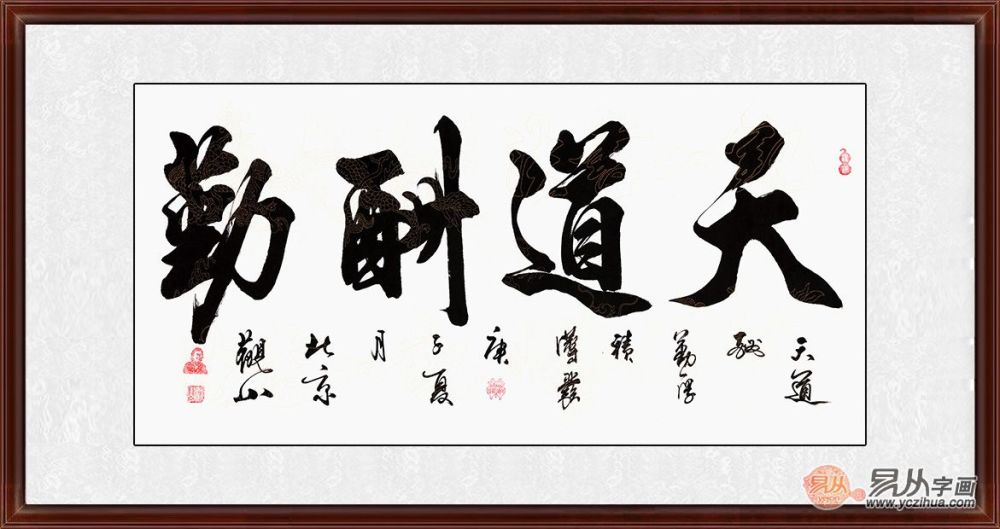 天道酬勤
天道酬勤厚積薄發庚子夏月北京觀山
易从字画
www.yczihua.com